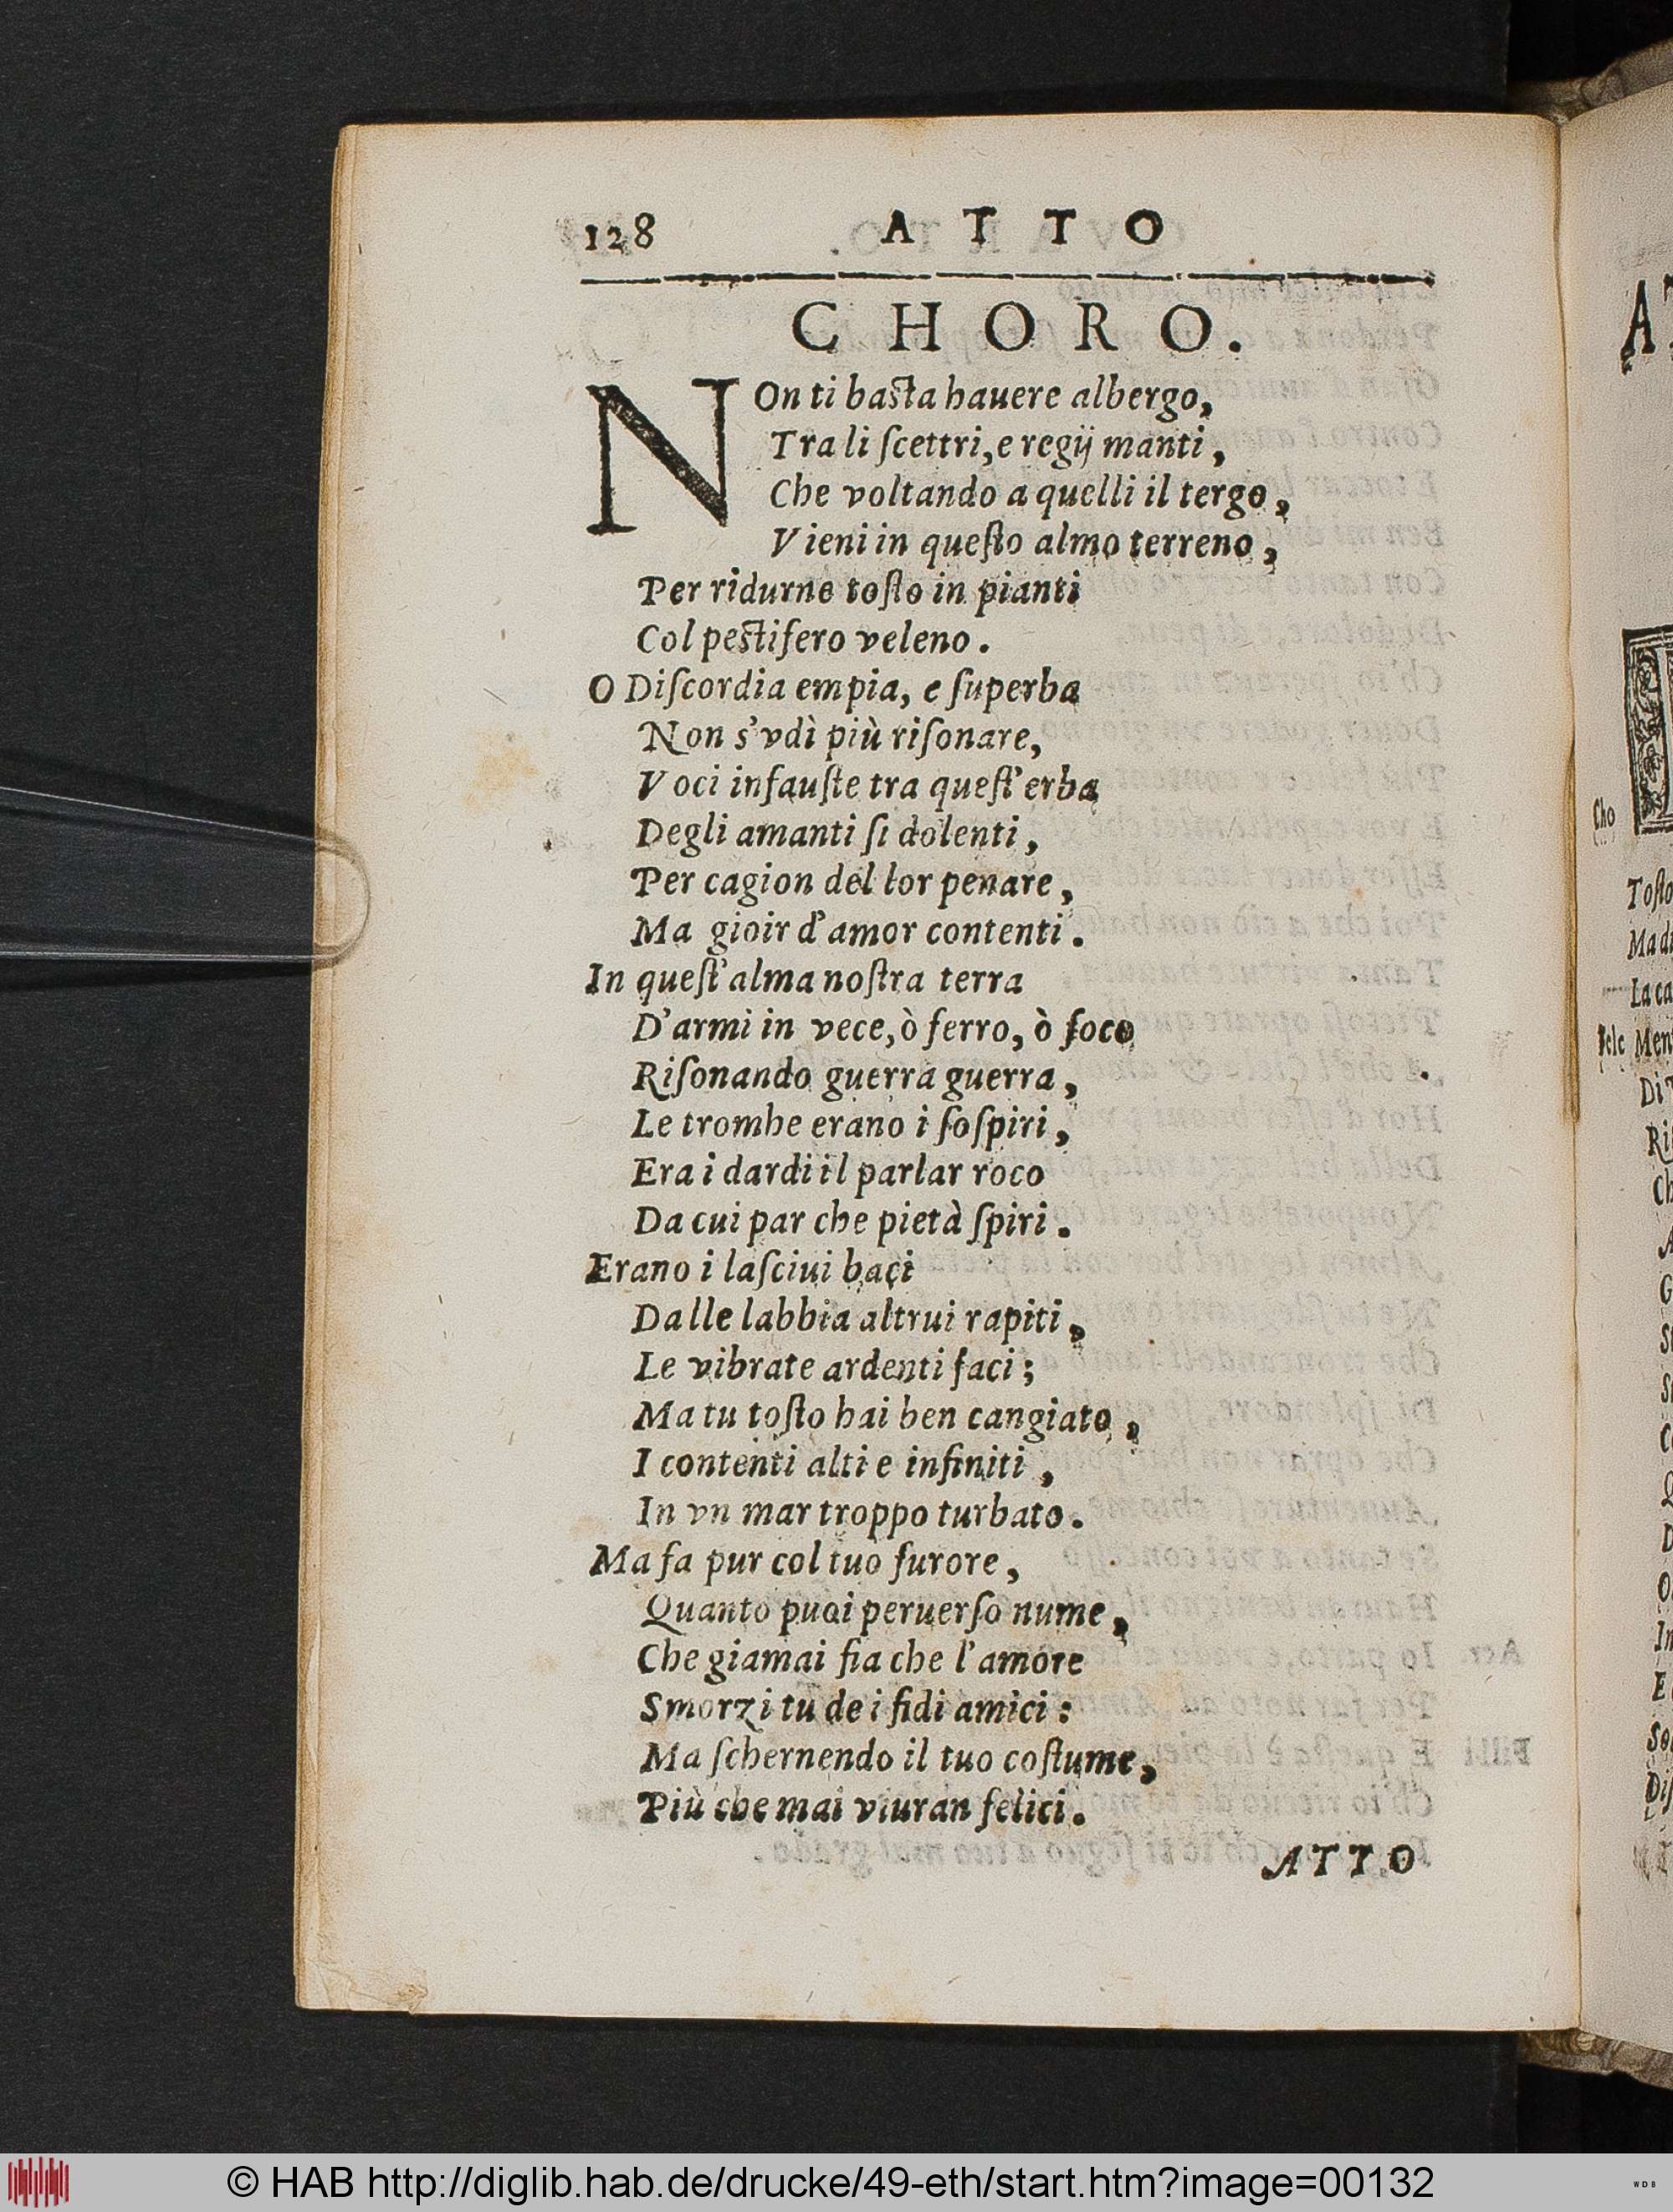 128 ATTO
CHORO.
NOn ti basta hauere albergo,
Tra li ſcettri, e regij manti,
Che voltando a quelli il tergo,
Vieni in queſto almo terreno,
Per ridurne toſto in pianti
Col pestifero veleno.
O Diſcordia empia, e ſuperba
Non s'vdì più riſonare,
Voci infauſte tra queſt'erba
Degli amanti ſi dolenti,
Per cagion del lor penare,
Ma gioir d'amor contenti.
In queſt'alma noſtra terra
D'armi in vece, ò ferro, ò foco
Riſonando guerra guerra,
Le trombe erano i ſoſpiri,
Era i dardi il parlar roco
Da cui par che pietà ſpiri.
Erano i laſciui baci
Dalle labbia altrui rapiti,
Le vibrate ardenti faci;
Ma tu toſto hai ben cangiato,
I contenti alti e infiniti,
In vn mar troppo turbato.
Ma fa pur col tuo furore,
Quanto puoi peruerſo nume,
Che giamai fia che l'amore
Smorzi tu de i fidi amici:
Ma ſchernendo il tuo coſtume,
Più che mai viuran felici.
ATTO
Cho
Toſto
La ca
© HAB http://diglib.hab.de/drucke/49-eth/start.htm?image=00132
WDB